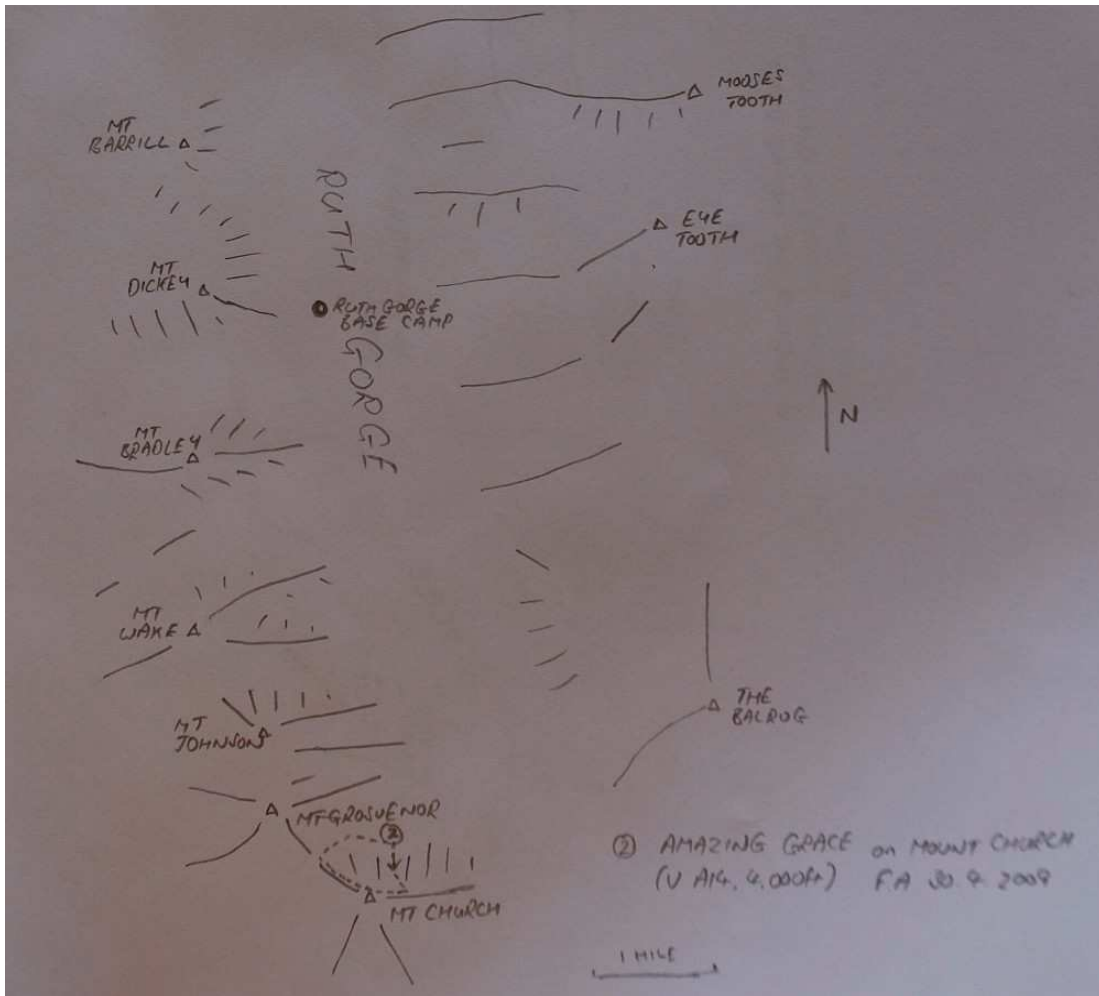 MOOSES
TOOTH
MT
BARRILL
EYE
TOOTH
RUTH
GORGE
MT
DICKEY
RUTH GORGE
BASE CAMP
N
MT
BRADLEY
MT
WAKE
THE
BALROG
MT
JOHNSON
MT GROSVENOR
2
MT CHURCH
2 AMAZING GRACE on MOUNT CHURCH
(V AI4, 4,000ft) F.A 30.4.2009
1 MILE